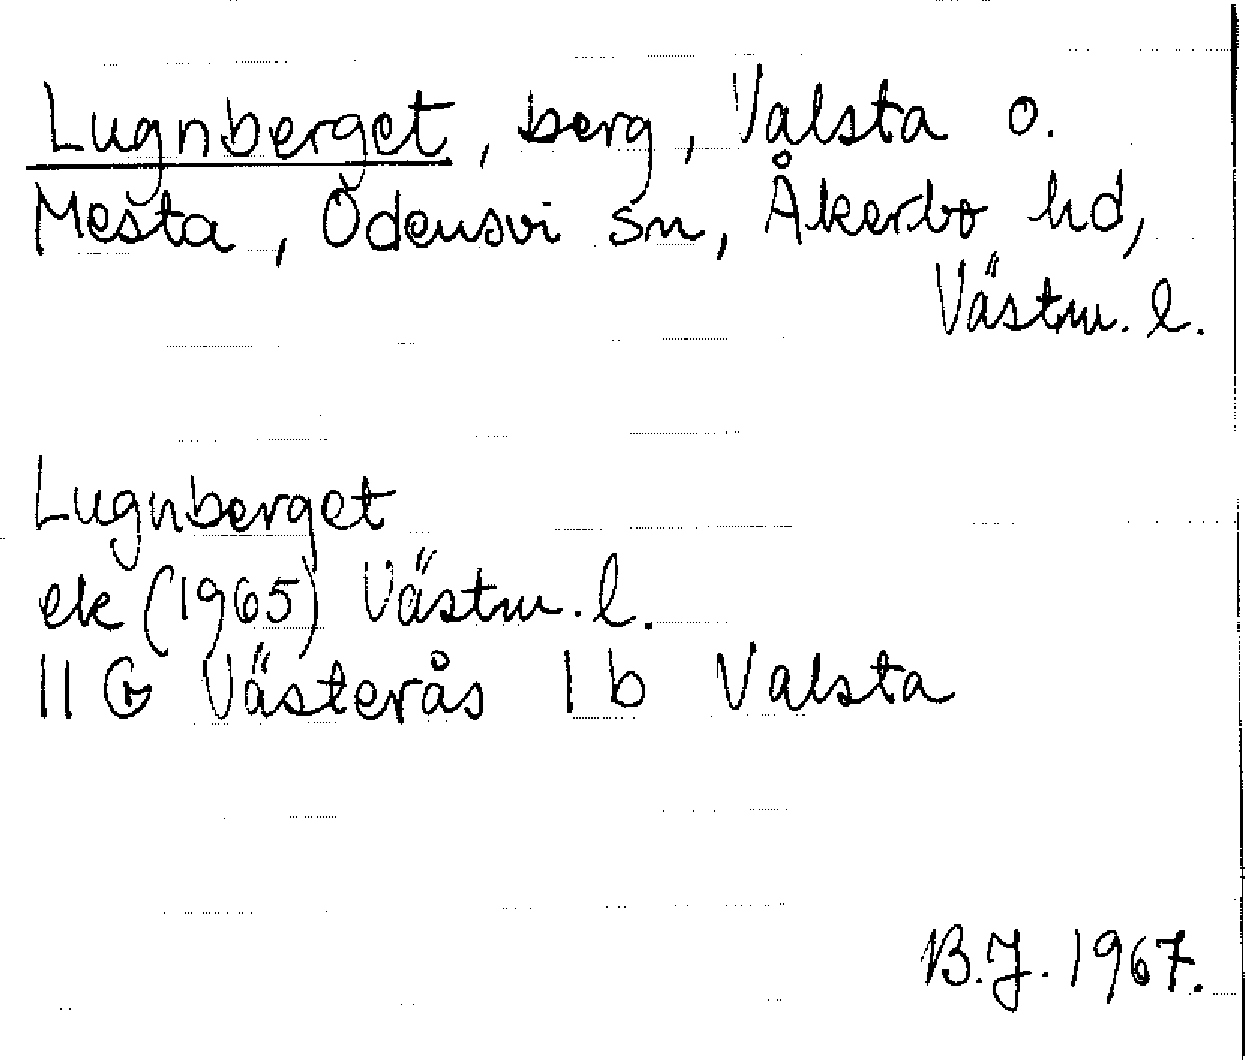 Lugnberget, berg, Valsta o.
Mesta, Odensvi sn, Åkerbo hd,
Västm. l.
Lugnberget
ek (1965) Västm. l.
11 G Västerås 1 b Valsta
B.J. 1967.